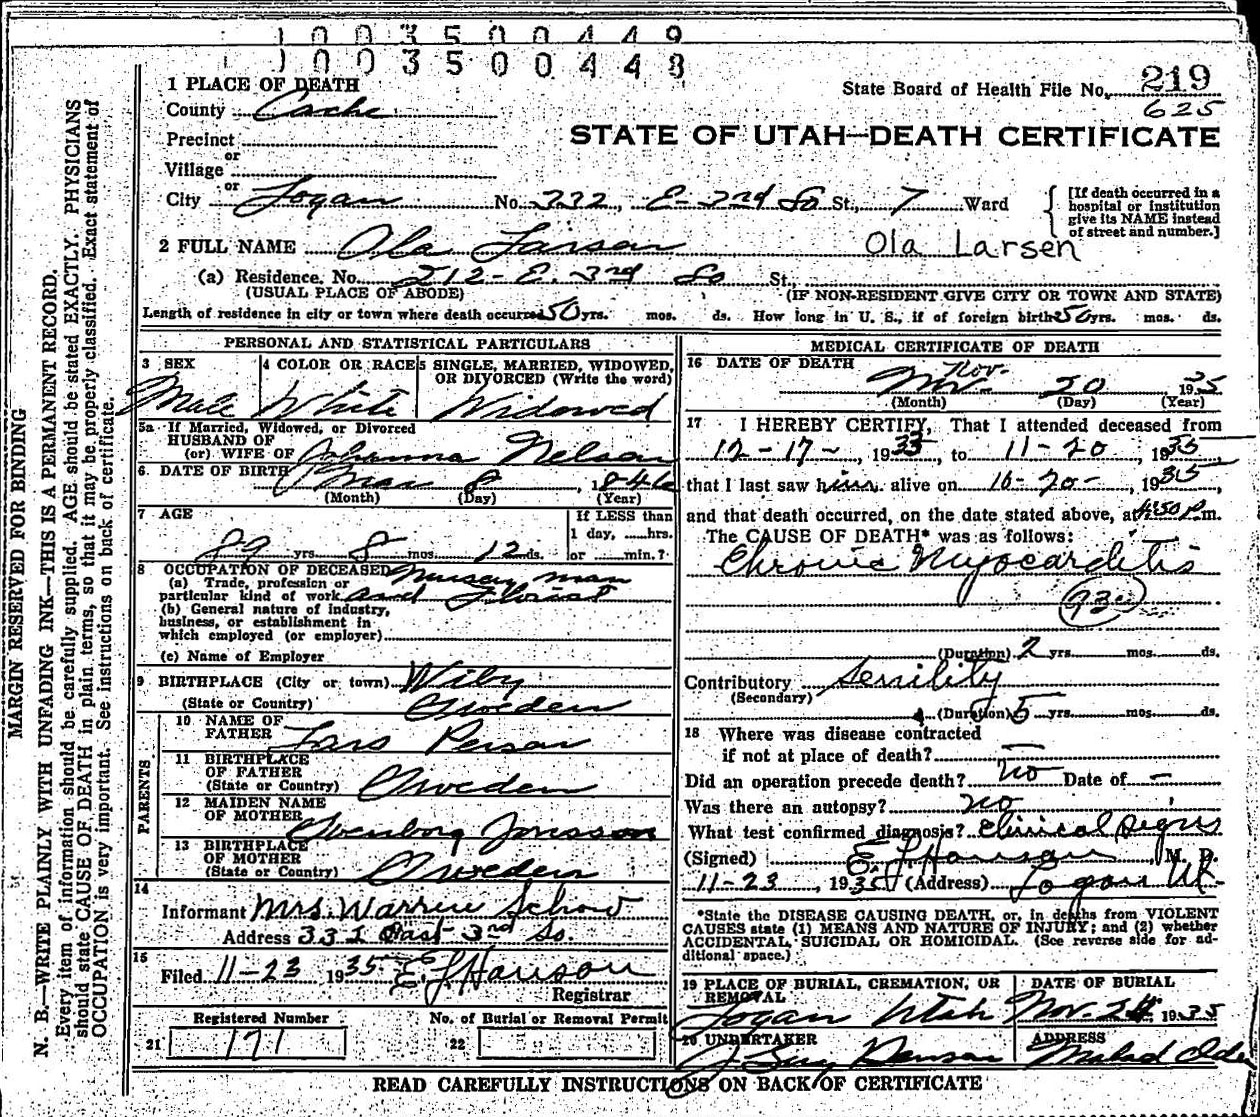 1 0 0 3 5 0 0 4 4 9
1 0 0 3 5 0 0 4 4 8
State Board of Health File No. 219
625
STATE OF UTAH—DEATH CERTIFICATE
1 PLACE OF DEATH
County Cache
Precinct
or
Village
or
City Logan No. 332, E-3rd So St., 7 Ward
[If death occurred in a
hospital or institution
give its NAME instead
of street and number.]
2 FULL NAME Ola Larsen Ola Larsen
(a) Residence. No. 212-E. 3rd So St.,
(USUAL PLACE OF ABODE) (IF NON-RESIDENT GIVE CITY OR TOWN AND STATE)
Length of residence in city or town where death occurred 50 yrs. mos. ds. How long in U. S., if of foreign birth 50 yrs. mos. ds.
PERSONAL AND STATISTICAL PARTICULARS
3 SEX
Male
4 COLOR OR RACE
White
5 SINGLE, MARRIED, WIDOWED,
OR DIVORCED (Write the word)
Widowed
5a If Married, Widowed, or Divorced
HUSBAND OF
(or) WIFE OF Johanna Nelson
6 DATE OF BIRTH Mar 8, 1846
(Month) (Day) (Year)
7 AGE
89 yrs. 8 mos. 12 ds.
If LESS than
1 day, ......hrs.
or ......min.?
8 OCCUPATION OF DECEASED
(a) Trade, profession or
particular kind of work Nursery man
and Florist
(b) General nature of industry,
business, or establishment in
which employed (or employer)
(c) Name of Employer
9 BIRTHPLACE (City or town) Wiby
(State or Country) Sweden
PARENTS
10 NAME OF
FATHER Lars Person
11 BIRTHPLACE
OF FATHER
(State or Country) Sweden
12 MAIDEN NAME
OF MOTHER Jonsson
13 BIRTHPLACE
OF MOTHER
(State or Country) Sweden
14
Informant Mrs. Warren Schow
Address 332 East 3rd So.
15
Filed 11-23 1935 E L Hanson
Registrar
Registered Number
21 171
No. of Burial or Removal Permit
22
MEDICAL CERTIFICATE OF DEATH
16 DATE OF DEATH
Nov.
Nov- 20 1935
(Month) (Day) (Year)
17 I HEREBY CERTIFY, That I attended deceased from
12-17-, 1933, to 11-20, 1935
that I last saw him alive on 10-20-, 1935,
and that death occurred, on the date stated above, at 4:50 P.m.
The CAUSE OF DEATH* was as follows:
Chronic Myocarditis
93c
(Duration) 2 yrs. mos. ds.
Contributory Senility
(Secondary)
(Duration) 5 yrs. mos. ds.
18 Where was disease contracted
if not at place of death? —
Did an operation precede death? no Date of —
Was there an autopsy? no
What test confirmed diagnosis? Clinical Signs
(Signed) E L Hanson, M. D.
11-23, 1935 (Address) Logan Ut.
*State the DISEASE CAUSING DEATH, or, in deaths from VIOLENT
CAUSES state (1) MEANS AND NATURE OF INJURY; and (2) whether
ACCIDENTAL, SUICIDAL OR HOMICIDAL. (See reverse side for ad-
ditional space.)
19 PLACE OF BURIAL, CREMATION, OR
REMOVAL
Logan Utah
DATE OF BURIAL
Nov. 24, 1935
20 UNDERTAKER
J
ADDRESS
Malad
READ CAREFULLY INSTRUCTIONS ON BACK OF CERTIFICATE
MARGIN RESERVED FOR BINDING
N. B.—WRITE PLAINLY WITH UNFADING INK—THIS IS A PERMANENT RECORD.
Every item of information should be carefully supplied. AGE should be stated EXACTLY. PHYSICIANS
should state CAUSE OF DEATH in plain terms, so that it may be properly classified. Exact statement of
OCCUPATION is very important. See instructions on back of certificate.